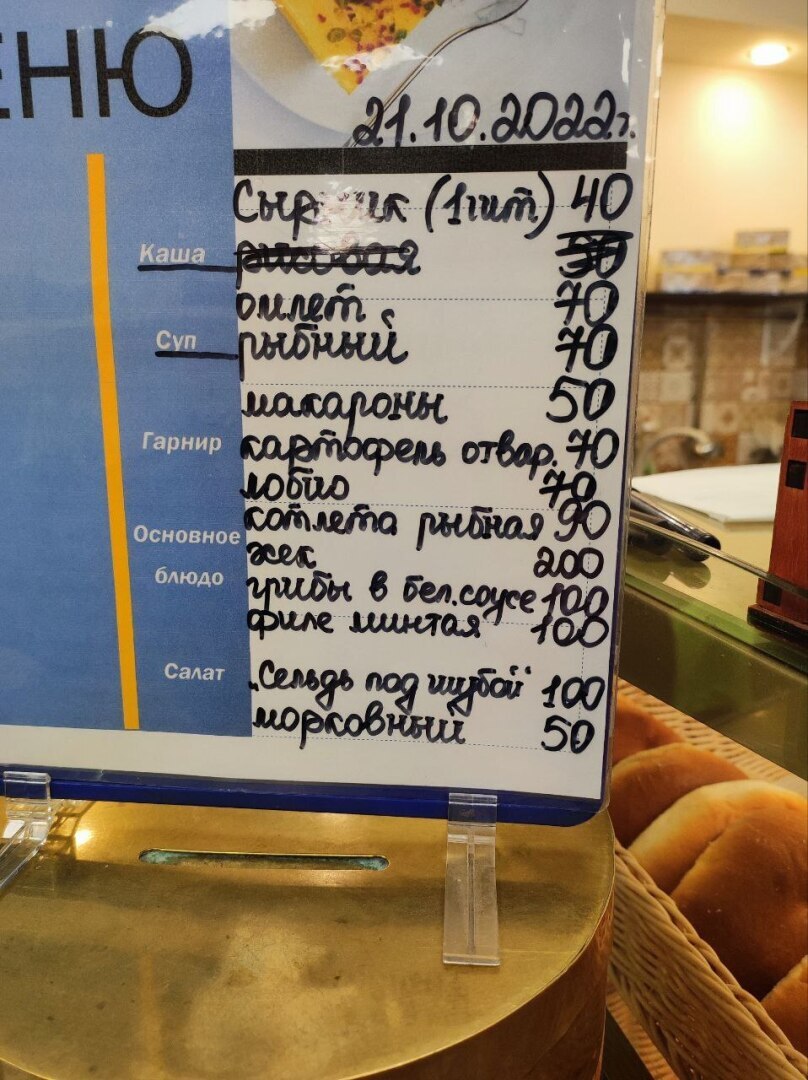 ЕНЮ
21.10.2022г.
Сырник (1шт) 40
Каша рисовая 50
омлет 70
Суп рыбный 70
макароны 50
Гарнир картофель отвар. 70
лобио 70
Основное блюдо котлета рыбная 90
хек 200
грибы в бел.соусе 100
филе минтая 100
Салат „Сельдь под шубой" 100
морковный 50